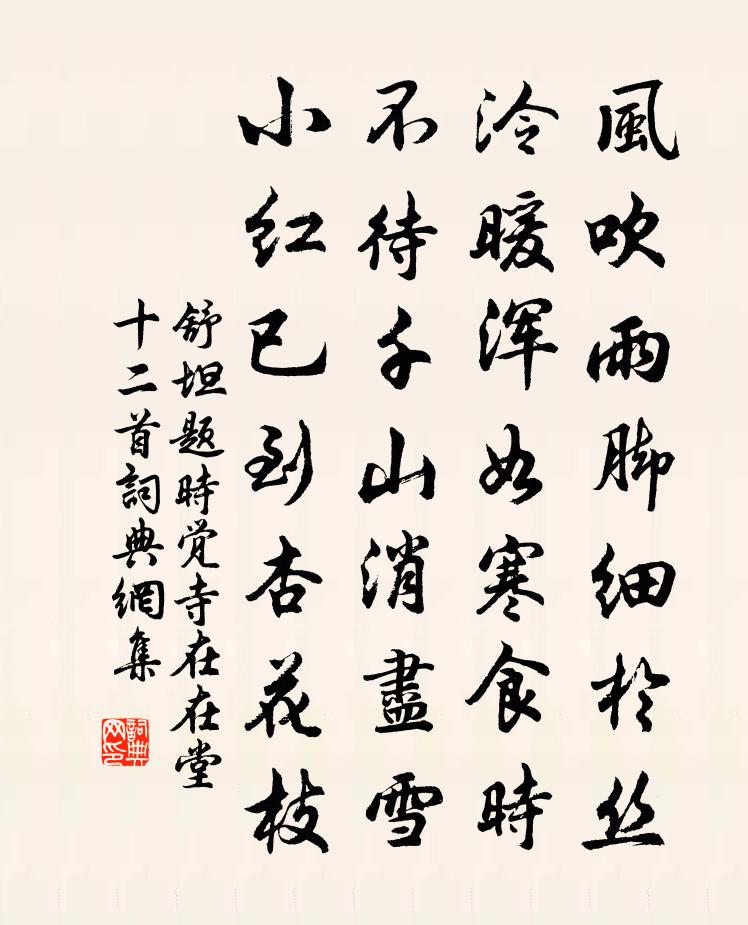 風吹雨脚细於丝
冷暖渾如寒食時
不待千山消盡雪
小红已到杏花枝
舒坦题時觉寺在在堂
十二首詞典網集
詞典网印